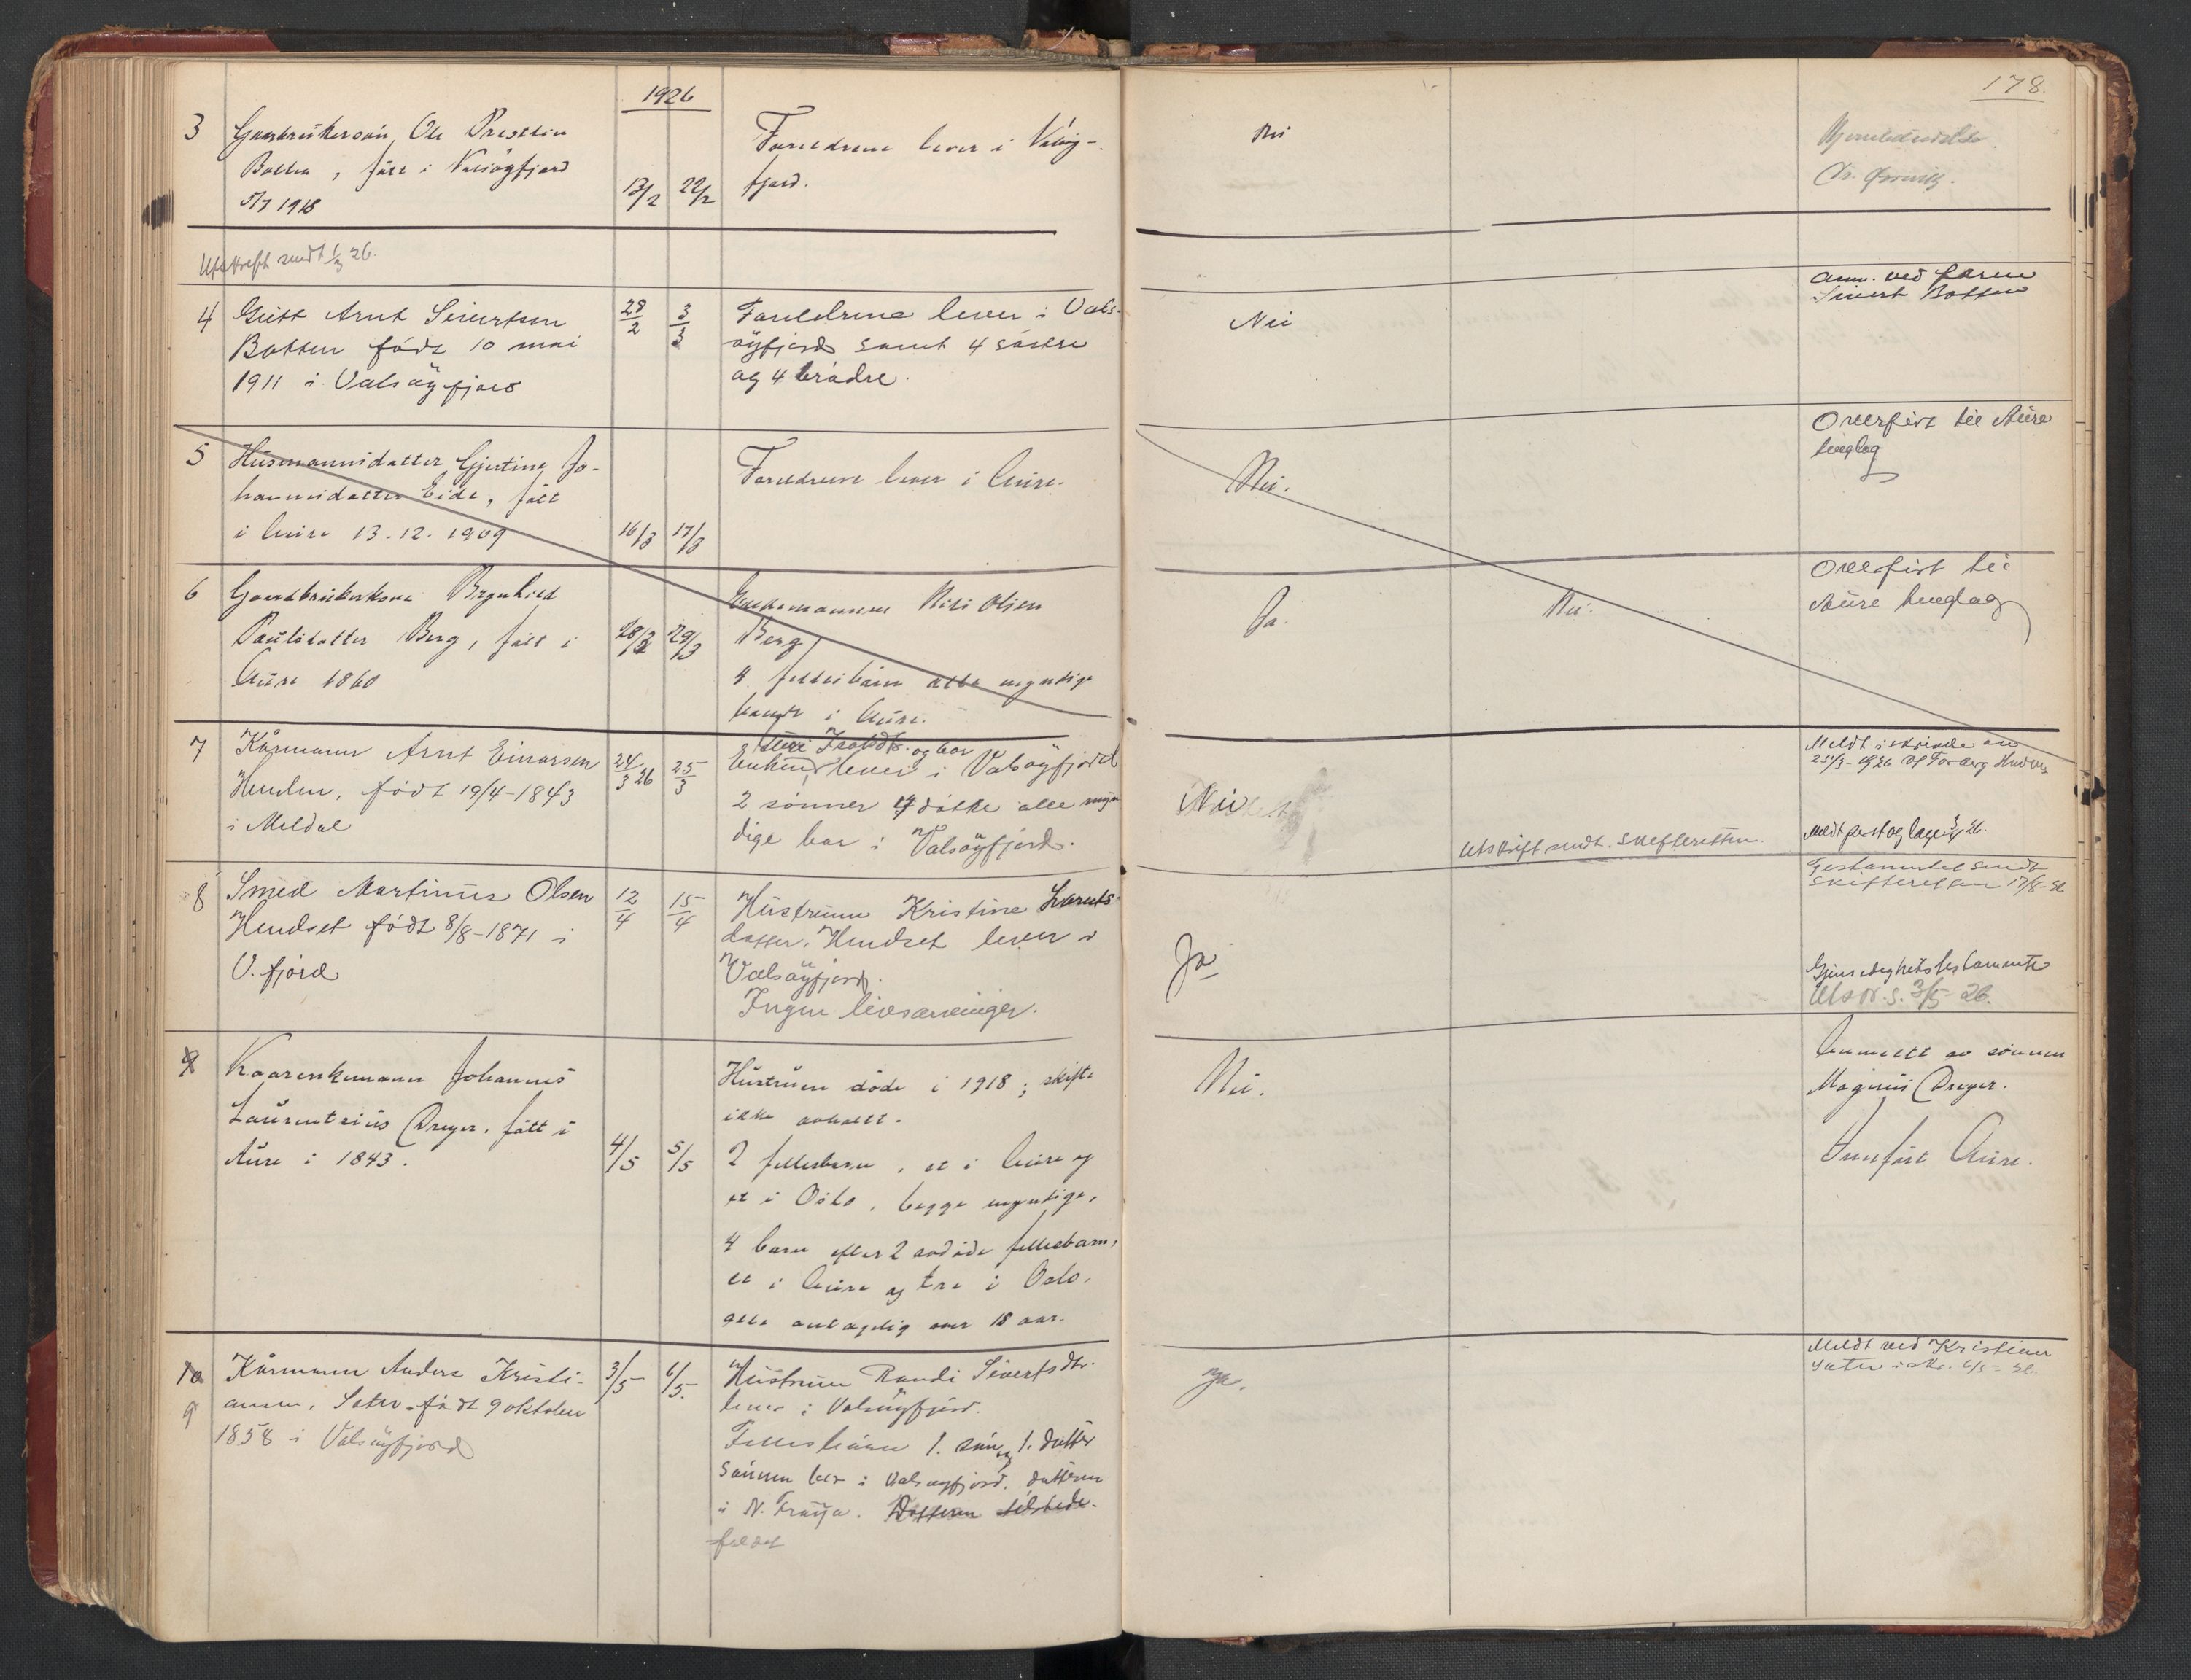 1926
178.
3 Gaardbrukersøn Ole Prestein
Botten, født i Valsøyfjord
5/7 1918
13/2 22/2
Foreldrene lever i Valsøy-
fjord.
Nei
Utskrift sendt 1/3 26.
4 Gutt Arnt Sivertsen
Botten født 10 mai
1911 i Valsøyfjord
28/2 3/3
Foreldrene lever i Vals-
øyfjord samt 4 søstre
og 4 brødre.
Nei
Anm. ved faren
Sivert Botten
5 Husmannsdatter Gjertine Jo-
hannesdatter Eide, født
i Aure 13.12.1909
16/3 17/3
Foreldrene lever i Aure.
Nei.
Overført til Aure
tinglag
6 Gaardbrukerkone Brynhild
Paulsdatter Berg, født i
Aure 1860
28/3 29/3
Enkemannen Nils Olsen
Berg
4 fellesbarn alle myndige
i Aure.
Ja.
Nei.
Overført til
Aure tinglag
7 Kårmann Arnt Einarsen
Henden, født 19/4-1843
i Meldal
24/3 26 25/3
Enken lever i Valsøyfjord
og bor
2 sønner døtre alle myn
dige bor i Valsøyfjord.
Nei
Utskrift sendt skifteretten.
Meldt
25/3-1926 af
Meldt 26.
8 Smed Martinus Olsen
Hendset født 8/8-1871 i
V.fjord
12/4 15/4
Hustruen Kristine Larents-
datter Hendset lever i
Valsøyfjord.
Ingen livsarvinger.
Ja
Testamentet sendt
skifteretten 17/8-26
Gjensidighetstestamente
3/5-26.
9 Kaarenkemann Johannes
Laurentsius Dreyer, født i
Aure i 1843.
4/5 5/5
Hustruen døde i 1918; skifte
ikke avholdt.
2 fellesbarn, et i Aure og
et i Oslo, begge myndige,
4 barn efter 2 avdøde fellesbarn,
et i Aure og tre i Oslo,
alle antagelig over 18 aar.
Nei.
Anmeldt av sønnen
Magnus Dreyer.
Innført Aure.
10
9
Kårmann Anders Kristi-
ansen, Sæter født 9 oktober
1858 i Valsøyfjord
3/5 6/5.
Hustruen Randi Sivertsdtr.
lever i Valsøyfjord.
Fellesbarn 1. søn og 1. datter
Sønnen bor i Valsøyfjord, datteren
i N. Frøya. Datteren
Ja.
Meldt ved Kristian
Sæter 6/5-26.